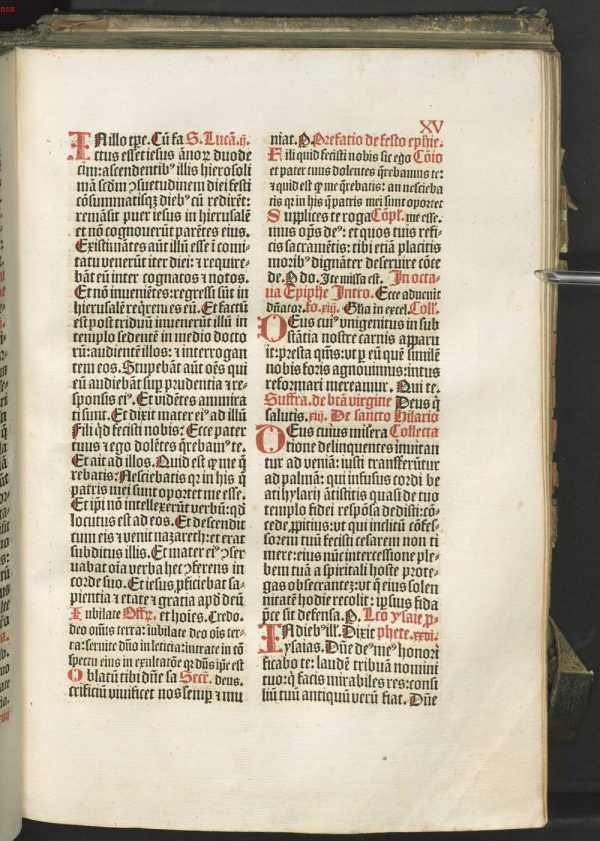 XV
IN illo tꝑe. Cū fa S. Lucā. ij.
ctus esset iesus ānoꝝ duode
cim: ascendentibꝰ illis hierosoli
mā scdm ꝯsuetudinem diei festi
cōsummatisqꝫ diebꝰ cū redirēt:
remāsit puer iesus in hierusalē
et nō cognouerūt parētes eius.
Existimātes aūt illū esse ī comi
tatu venerūt iter diei: ⁊ require-
bāt eū inter cognatos ⁊ notos.
Et nō inueniētes: regressi sūt in
hierusalē reqrentes eū. Et factū
est post triduū inuenerūt illū in
templo sedentē in medio docto
rū: audientē illos: ⁊ interrogan
tem eos. Stupebāt aūt oēs qui
eū audiebāt sup prudentia ⁊ re-
sponsis eiꝰ. Et vidētes ammira
ti sunt. Et dixit mater eiꝰ ad illū
Fili qd fecisti nobis: Ecce pater
tuus ⁊ ego dolētes q̄rebamꝰ te.
Et ait ad illos. Quid est ꝙ me q̄
rebatis: Nesciebatis qꝛ in his q̄
patris mei sunt oportet me esse.
Et ip̄i nō intellexerūt verbū: qd
locutus est ad eos. Et descendit
cum eis ⁊ venit nazareth: et erat
subditus illis. Et mater eiꝰ ꝯser
uabat oīa verba hec ꝯferens in
corde suo. Et iesus ꝓficiebat sa-
pientia ⁊ etate ⁊ gratia apd deū
Iubilate Offꝝ. et hoīes. Credo.
deo om̄is terra: iubilate deo oīs ter-
ra: seruite dn̄o in leticia: intrate in cō
spectu eius in exultatōe qꝛ dn̄s ip̄e est
Oblatū tibi dn̄e sa Secř. deus.
crificiū viuificet nos semꝑ ⁊ mu
niat. P. Prefatio de festo ephie.
Fili quid fecisti nobis sic ego Cōio
et pater tuus dolentes q̄rebamus te:
⁊ quid est ꝙ me q̄rebatis: an nescieba
tis qꝛ in his q̄ patris mei sunt oportet
Supplices te roga Cōpl. me esse.
mus op̄s deꝰ: et quos tuis refi-
cis sacramētis: tibi etiā placitis
moribꝰ dignāter deseruire cōce
de. P do. Ite missa est. In octa-
ua Epiphe Intro. Ecce aduenit
dn̄ator. fo. xiij. Glīa in excel. Coll.
DEus cuiꝰ vnigenitus in sub
stātia nostre carnis apparu
it: presta qm̄s: vt ꝑ eū quē similē
nobis foris agnouimus: intus
reformari mereamur. Qui te.
Suffra. de btā virgine Deus q̄
salutis. xiij. De sancto Hilario
DEus cuius misera Collecta
tione delinquentes inuitan
tur ad veniā: iusti transferūtur
ad palmā: qui infusus cordi be
ati hylarij ātistitis quasi de tuo
templo fidei respōsa dedisti: cō-
cede ꝓpitius: vt qui inclitū cōfes-
sorem tuū fecisti cesarem non ti
mere: eius nūc intercessione ple-
bem tuā a spiritali hoste prote-
gas obsecrante3: vt q̄ eius solen
nitatē hodie recolit: ipsius fida
pce sit defensa. P. Lcō ysaie ꝓ-
IN diebꝰ ill̓. Dixit phete. xxdi.
ysaias. Dn̄e deꝰ meꝰ honori
ficabo te: laudē tribuā nomini
tuo: q̄ facis mirabiles res: consi
liū tuū antiquū verū fiat. Dn̄e